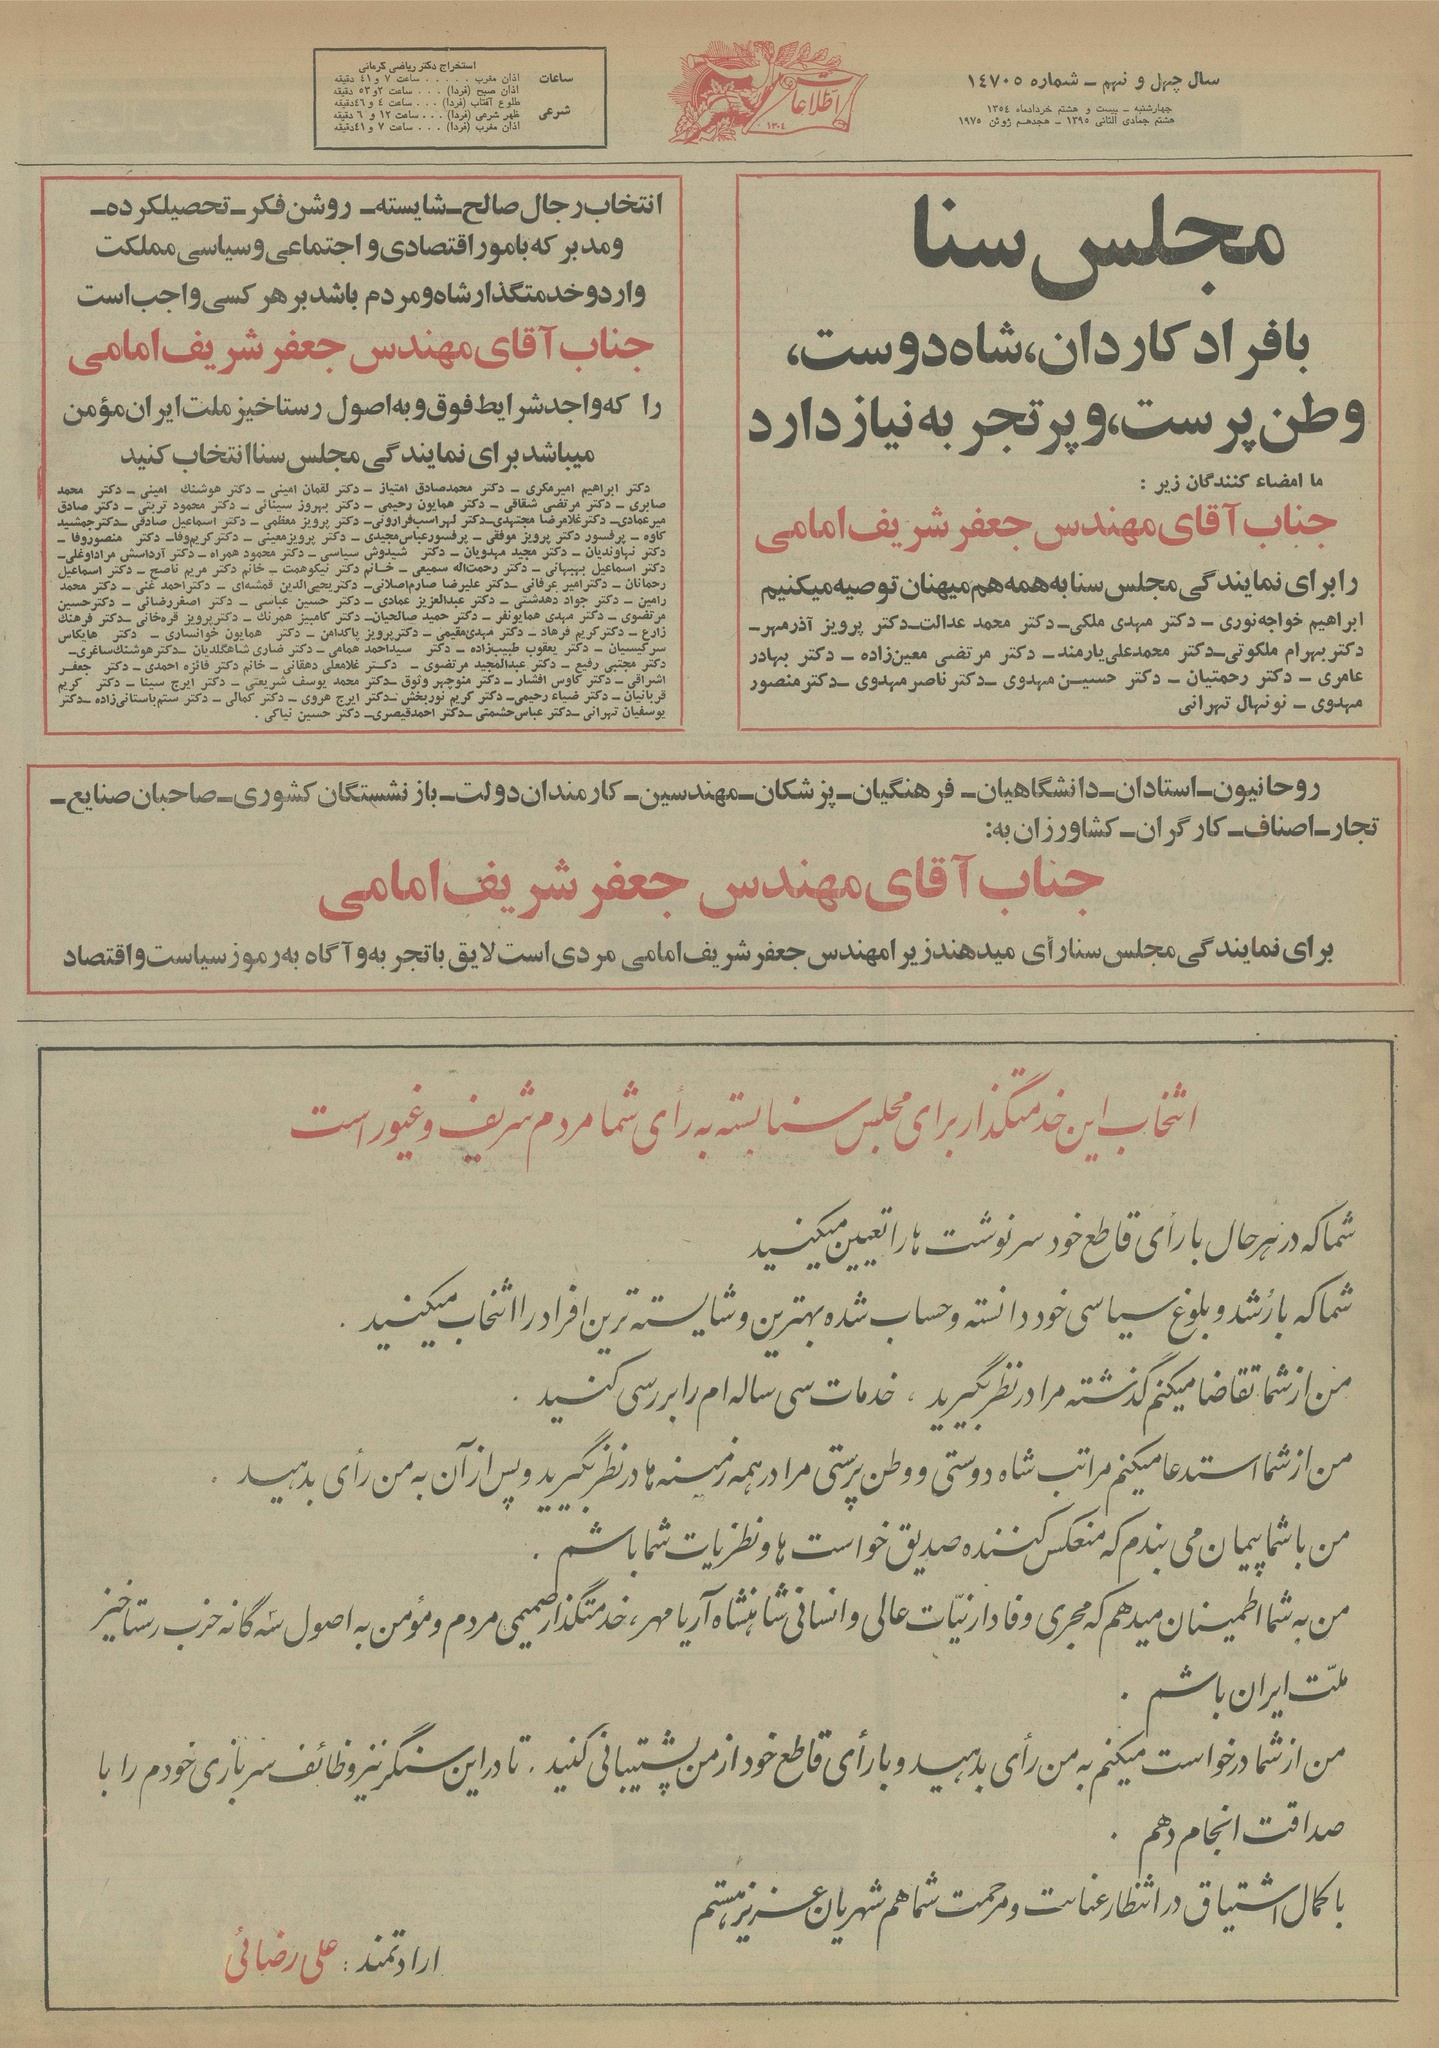 سال چهل و نهم ـ شماره ۱۴۷۰۵
چهارشنبه ـ بیست و هشتم خردادماه ۱۳۵۴
هشتم جمادی الثانی ۱۳۹۵ ـ هجدهم ژوئن ۱۹۷۵
اطلاعات
۱۳۰۴
ساعات
شرعی
استخراج دکتر ریاضی کرمانی
اذان مغرب . . . . . ساعت ۷ و ۴۱ دقیقه
اذان صبح (فردا) . . . ساعت ۲ و ۵۳ دقیقه
طلوع آفتاب (فردا) . . . ساعت ۴ و ۴۶ دقیقه
ظهر شرعی (فردا) . . . ساعت ۱۲ و ۶ دقیقه
اذان مغرب (فردا) . . . ساعت ۷ و ۴۱ دقیقه
مجلس سنا
بافراد کاردان، شاه دوست،
وطن پرست، و پرتجربه نیاز دارد
ما امضاء کنندگان زیر :
جناب آقای مهندس جعفر شریف امامی
را برای نمایندگی مجلس سنا به همه هم میهنان توصیه میکنیم
ابراهیم خواجه نوری ـ دکتر مهدی ملکی ـ دکتر محمد عدالت ـ دکتر پرویز آذرمهر ـ
دکتر بهرام ملکوتی ـ دکتر محمدعلی یارمند ـ دکتر مرتضی معین زاده ـ دکتر بهادر
عامری ـ دکتر رحمتیان ـ دکتر حسین مهدوی ـ دکتر ناصر مهدوی ـ دکتر منصور
مهدوی ـ نونهال تهرانی
انتخاب رجال صالح ـ شایسته ـ روشن فکر ـ تحصیلکرده ـ
و مدبر که بامور اقتصادی و اجتماعی و سیاسی مملکت
وارد و خدمتگذار شاه و مردم باشد بر هر کسی واجب است
جناب آقای مهندس جعفر شریف امامی
را که واجد شرایط فوق و به اصول رستاخیز ملت ایران مؤمن
میباشد برای نمایندگی مجلس سنا انتخاب کنید
دکتر ابراهیم امیرمکری ـ دکتر محمدصادق امتیاز ـ دکتر لقمان امینی ـ دکتر هوشنگ امینی ـ دکتر محمد
صابری ـ دکتر مرتضی شقاقی ـ دکتر همایون رحیمی ـ دکتر بهروز سینائی ـ دکتر محمود تربتی ـ دکتر صادق
میرعمادی ـ دکتر غلامرضا مجتهدی ـ دکتر لهراسب فرارونی ـ دکتر پرویز معظمی ـ دکتر اسماعیل صادقی ـ دکتر جمشید
کاوه ـ پرفسور دکتر پرویز موفقی ـ پرفسور عباس مجیدی ـ دکتر پرویز معینی ـ دکتر کریم وفا ـ دکتر منصور وفا ـ
دکتر نهاوندیان ـ دکتر مجید مهدویان ـ دکتر شیدوش سیاسی ـ دکتر محمود همراه ـ دکتر آرداسش مراداوغلی ـ
دکتر اسماعیل بهبهانی ـ دکتر رحمت اله سمیعی ـ خانم دکتر نیکوهمت ـ خانم دکتر مریم ناصح ـ دکتر اسماعیل
رحمانان ـ دکتر امیر عرفانی ـ دکتر علیرضا صارم اصلانی ـ دکتر یحیی الدین قمشه‌ای ـ دکتر احمد غنی ـ دکتر محمد
رامین ـ دکتر جواد دهدشتی ـ دکتر عبدالعزیز عمادی ـ دکتر حسین عباسی ـ دکتر اصغر رضائی ـ دکتر حسین
مرتضوی ـ دکتر مهدی همایونفر ـ دکتر حمید صالحیان ـ دکتر کامبیز همرنگ ـ دکتر پرویز قره خانی ـ دکتر فرهنگ
زارع ـ دکتر کریم فرهاد ـ دکتر مهدی مقیمی ـ دکتر پرویز پاکدامن ـ دکتر همایون خوانساری ـ دکتر هایکاس
سرکیسیان ـ دکتر یعقوب طبیب زاده ـ دکتر سیداحمد همامی ـ دکتر ضاری شاهگلدیان ـ دکتر هوشنگ ساغری ـ
دکتر مجتبی رفیع ـ دکتر عبدالمجید مرتضوی ـ دکتر غلامعلی دهقانی ـ خانم دکتر فائزه احمدی ـ دکتر جعفر
اشراقی ـ دکتر کاوس افشار ـ دکتر منوچهر وثوق ـ دکتر محمد یوسف شریعتی ـ دکتر ایرج سینا ـ دکتر کریم
قربانیان ـ دکتر ضیاء رحیمی ـ دکتر کریم نوربخش ـ دکتر ایرج هروی ـ دکتر کمالی ـ دکتر ستم باستانی زاده ـ دکتر
یوسفیان تهرانی ـ دکتر عباس حشمتی ـ دکتر احمد قیصری ـ دکتر حسین نیاکی .
روحانیون ـ استادان ـ دانشگاهیان ـ فرهنگیان ـ پزشکان ـ مهندسین ـ کارمندان دولت ـ بازنشستگان کشوری ـ صاحبان صنایع ـ
تجار ـ اصناف ـ کارگران ـ کشاورزان به:
جناب آقای مهندس جعفر شریف امامی
برای نمایندگی مجلس سنا رأی میدهند زیرا مهندس جعفر شریف امامی مردی است لایق با تجربه و آگاه به رموز سیاست و اقتصاد
انتخاب این خدمتگذار برای مجلس سنا بسته به رأی شما مردم شریف و غیور است
شما که در هر حال با رأی قاطع خود سرنوشت ها را تعیین میکنید
شما که با رُشد و بلوغ سیاسی خود دانسته و حساب شده بهترین و شایسته ترین افراد را انتخاب میکنید .
من از شما تقاضا میکنم گذشته مرا در نظر بگیرید ، خدمات سی ساله ام را بررسی کنید .
من از شما استدعا میکنم مراتب شاه دوستی و وطن پرستی مرا در همه زمینه ها در نظر بگیرید و پس از آن به من رأی بدهید .
من با شما پیمان می بندم که منعکس کننده صدیق خواست ها و نظریات شما باشم .
من به شما اطمینان میدهم که مجری وفادار نیّات عالی و انسانی شاهنشاه آریامهر، خدمتگذار صمیمی مردم و مؤمن به اصول سه گانه حزب رستاخیز
ملّت ایران باشم .
من از شما درخواست میکنم به من رأی بدهید و با رأی قاطع خود از من پشتیبانی کنید . تا در این سنگر نیز وظائف سربازی خودم را با
صداقت انجام دهم .
با کمال اشتیاق در انتظار عنایت و مرحمت شما همشهریان عزیز هستم
ارادتمند : علی رضائی